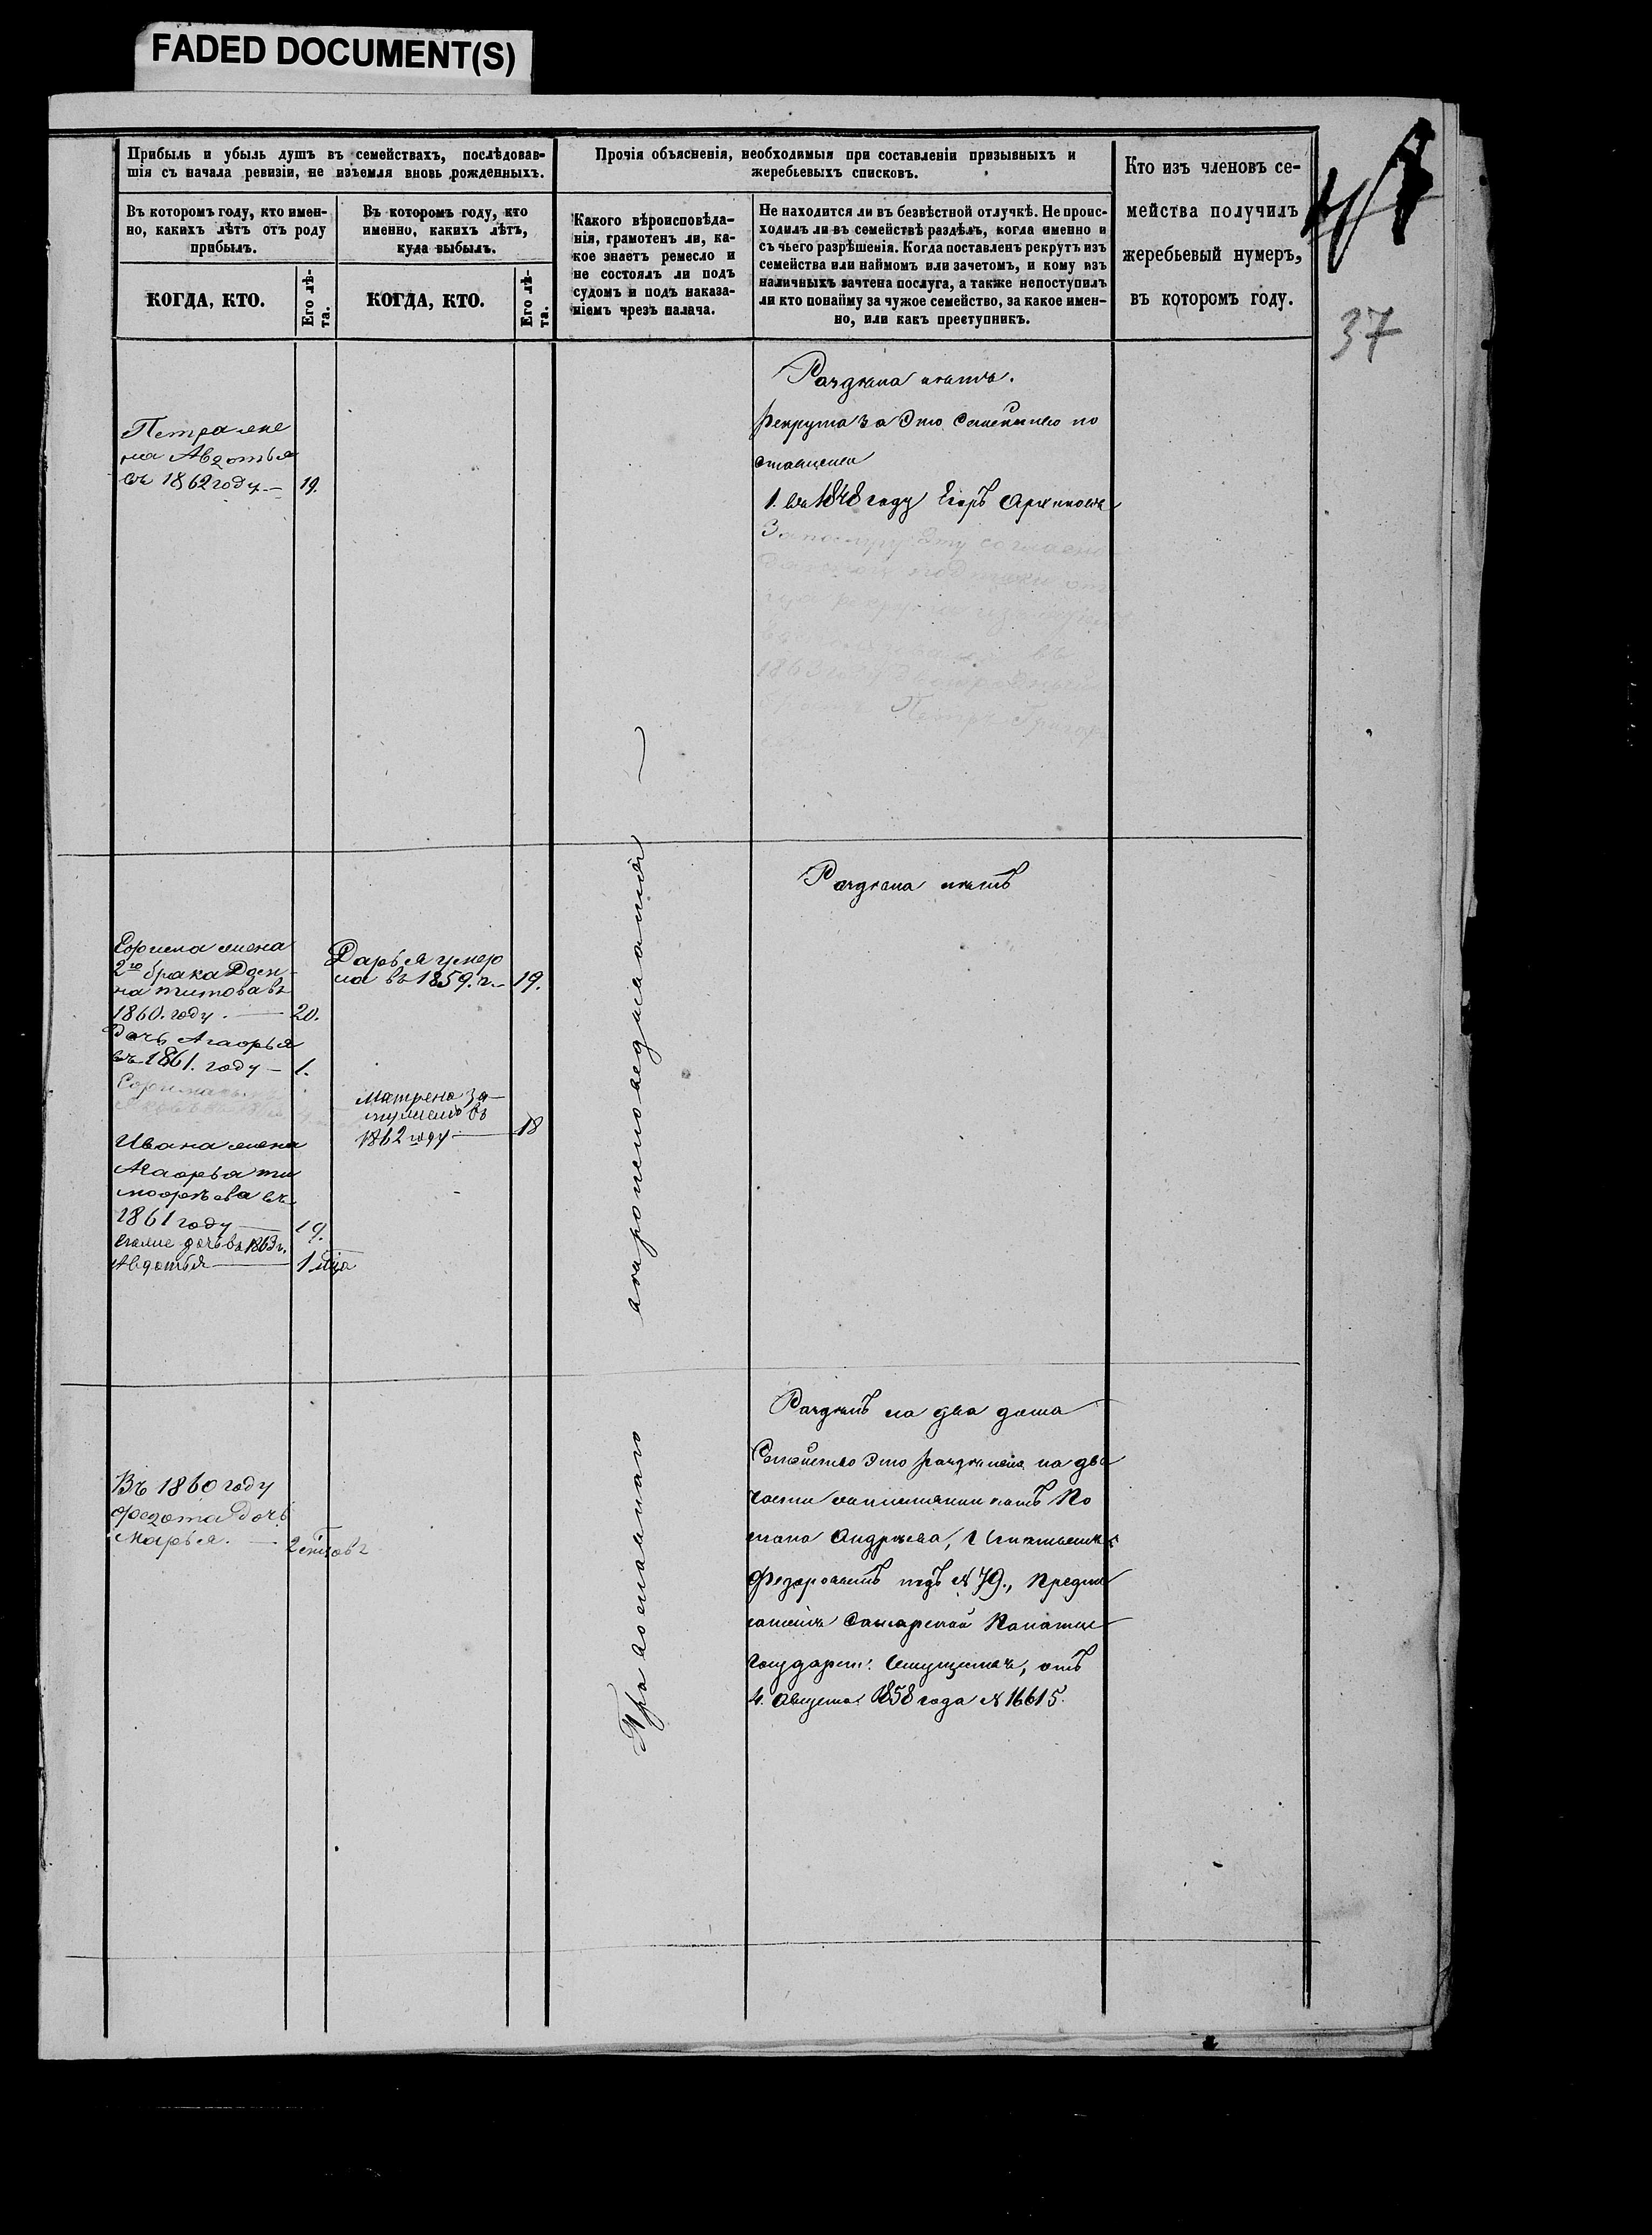 FADED DOCUMENT(S)
Прибыль и убыль душъ въ семействахъ, послѣдовав-
шія съ начала ревизіи, не изъемля вновь рожденныхъ.
Въ которомъ году, кто имен-
но, какихъ лѣтъ отъ роду
прибылъ.
КОГДА, КТО.
Его лѣ-
та.
Въ которомъ году, кто
именно, какихъ лѣтъ,
куда выбылъ.
КОГДА, КТО.
Его лѣ-
та.
Прочія объясненія, необходимыя при составленіи призывныхъ и
жеребьевыхъ списковъ.
Какого вѣроисповѣда-
нія, грамотенъ ли, ка-
кое знаетъ ремесло и
не состоялъ ли подъ
судомъ и подъ наказа-
ніемъ чрезъ палача.
Не находится ли въ безвѣстной отлучкѣ. Не проис-
ходилъ ли въ семействѣ раздѣлъ, когда именно и
съ чьего разрѣшенія. Когда поставленъ рекрутъ изъ
семейства или наймомъ или зачетомъ, и кому изъ
наличныхъ зачтена послуга, а также непоступилъ
ли кто понайму за чужое семейство, за какое имен-
но, или какъ преступникъ.
Кто изъ членовъ се-
мейства получилъ
жеребьевый нумеръ,
въ которомъ году.
37
Петра жена
Авдотья
въ 1862 году 19.
Раздѣла нѣтъ.
Рекрута за это семейство по
ставлено
1. въ 1848 году Егоръ Архиповъ
За послугу эту согласно
1863 году двоюродный
братъ Петръ Григорь
Раздѣла нѣтъ
жена
2го брака
на Титова въ
1860. году. 20.
дочь Агафья
въ 1861. году 1.
Ивана жена
Агафья Ти
мофѣева въ
1861 году 19.
дочь въ 1863 г.
Авдотья 1 мѣца
Дарья умер
ла въ 1859. г. 19.
Матрена за
въ
1862 году 18
Православнаго вѣроисповеданія
Въ 1860 году
Федота дочь
Марья. 2 мѣцовъ
Раздѣлъ на два дома
Семейство это раздѣлено на два
части
Андрѣева,
Федоровымъ подъ №79., Предпи
саніемъ Самарской Палаты
Государст: Имуществъ, отъ
4. Августа 1858 года №16615.